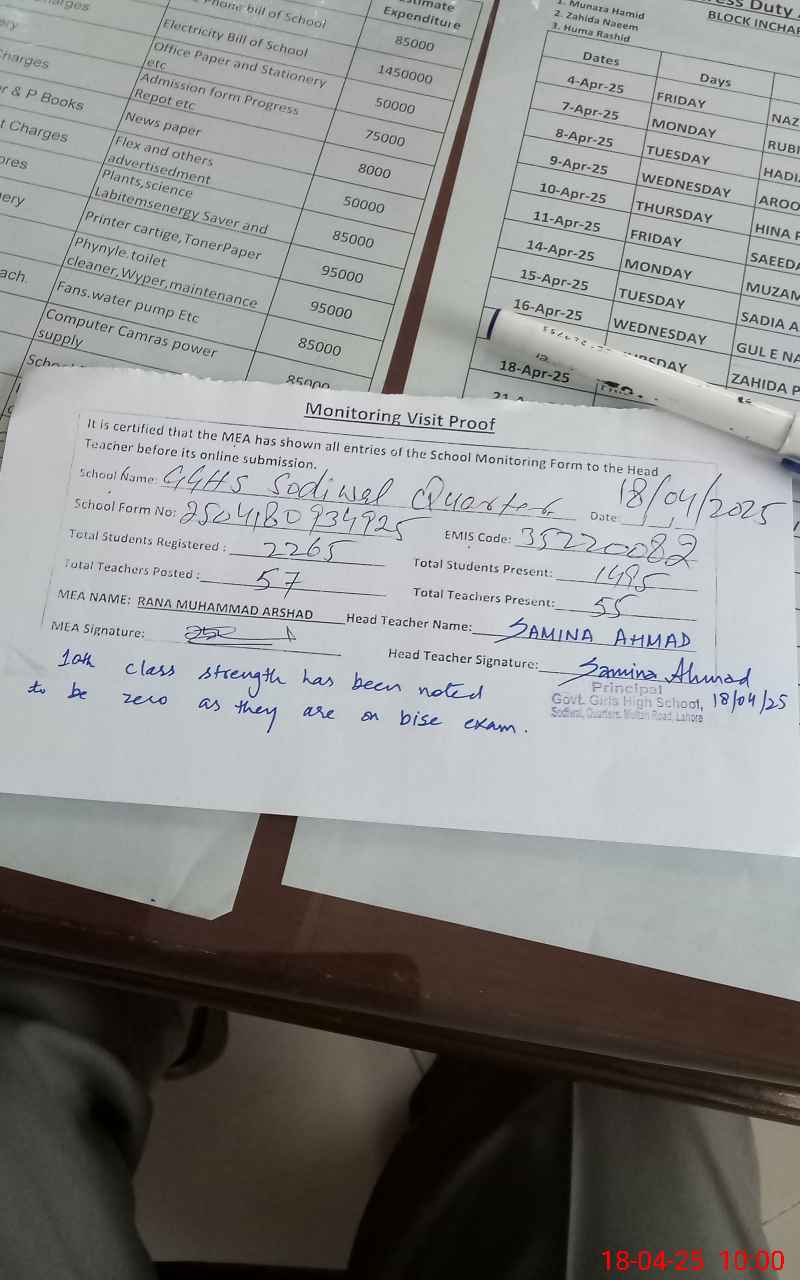 arges
Phone bill of School
Estimate
Expenditure
Electricity Bill of School
85000
Charges
Office Paper and Stationery
etc
1450000
Admission form Progress
Repot etc
50000
r & P Books
News paper
75000
t Charges
Flex and others
advertisedment
8000
ores
Plants,science
Labitemsenergy Saver and
50000
ery
Printer cartige,TonerPaper
85000
Phynyle.toilet
cleaner,Wyper,maintenance
95000
ach.
Fans.water pump Etc
95000
Computer Camras power
supply
85000
85000
ess Duty
1. Munaza Hamid
2. Zahida Naeem
3. Huma Rashid
BLOCK INCHAR
Dates
Days
4-Apr-25
FRIDAY
NAZ
7-Apr-25
MONDAY
RUBI
8-Apr-25
TUESDAY
HADI
9-Apr-25
WEDNESDAY
AROO
10-Apr-25
THURSDAY
HINA
11-Apr-25
FRIDAY
SAEEDA
14-Apr-25
MONDAY
MUZAM
15-Apr-25
TUESDAY
SADIA A
16-Apr-25
WEDNESDAY
GUL E NA
RSDAY
ZAHIDA P
18-Apr-25
Monitoring Visit Proof
It is certified that the MEA has shown all entries of the School Monitoring Form to the Head
Teacher before its online submission.
School Name: GGHS Sodiwal Quarters Date: 18/04/2025
School Form No: 2504180934925 EMIS Code: 35220082
Total Students Registered : 2265 Total Students Present: 1495
Total Teachers Posted : 57 Total Teachers Present: 55
MEA NAME: RANA MUHAMMAD ARSHAD Head Teacher Name: SAMINA AHMAD
MEA Signature: Head Teacher Signature: Samina Ahmad
Principal
Govt. Girls High School, 18/04/25
Sodiwal, Quarters. Multan Road, Lahore
10th class strength has been noted
to be zero as they are on bise exam.
18-04-25 10:00